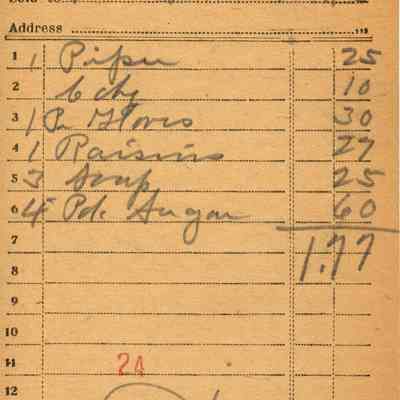 Address
1 1 25
2 10
3 1 Pr Gloves 30
4 1 Raisins 27
5 3 Soap 25
6 4 Pds Sugar 60
7 1.77
8
9
10
11 24
12